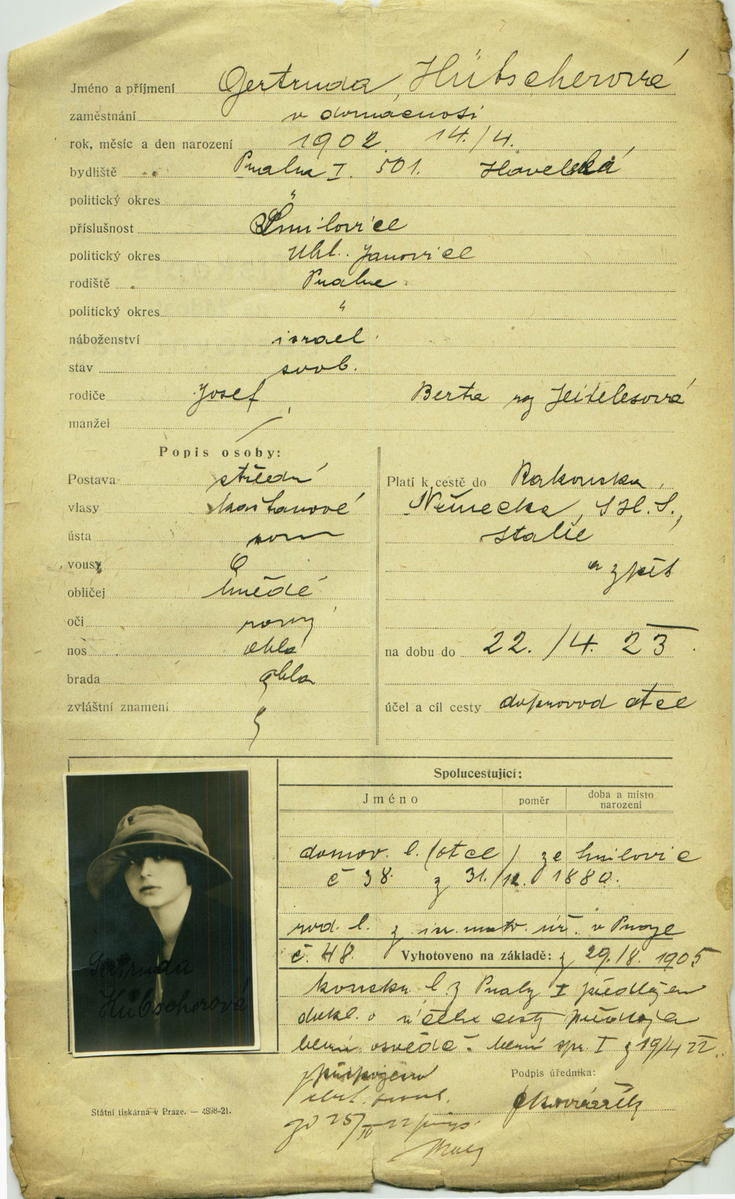 Jméno a příjmení Gertruda Hübscherová
zaměstnání v domácnosti
rok, měsíc a den narození 1902 14./4.
bydliště Praha I. 501. Havelská
politický okres "
příslušnost Smilovice
politický okres Uhl. Janovice
rodiště Praha
politický okres "
náboženství israel.
stav svob.
rodiče Josef, Berta roz Jeitelesová
manžel /
Popis osoby:
Postava střední
vlasy kaštanové
ústa
vousy
obličej hnědé
oči
nos oblá
brada oblá
zvláštní znamení
Platí k cestě do Rakouska,
Německa, S.H.S.,
Italie
a zpět
na dobu do 22./4. 23.
účel a cíl cesty doprovod otce
Spolucestující:
Jméno poměr doba a místo narození
domov. l. (otce) ze Smilovic
č 38. z 31./12. 1880.
rod. l. z isr. matr. úř. v Praze
č. 48. Vyhotoveno na základě: z 29./8. 1905
konsku. l. z Prahy I předložen
dokl. o účelu cesty
berní osvědč. berní spr. I z 19/4 22.
Gertruda
Hübscherová
Podpis úředníka:
Státní tiskárna v Praze. — 4898-21.